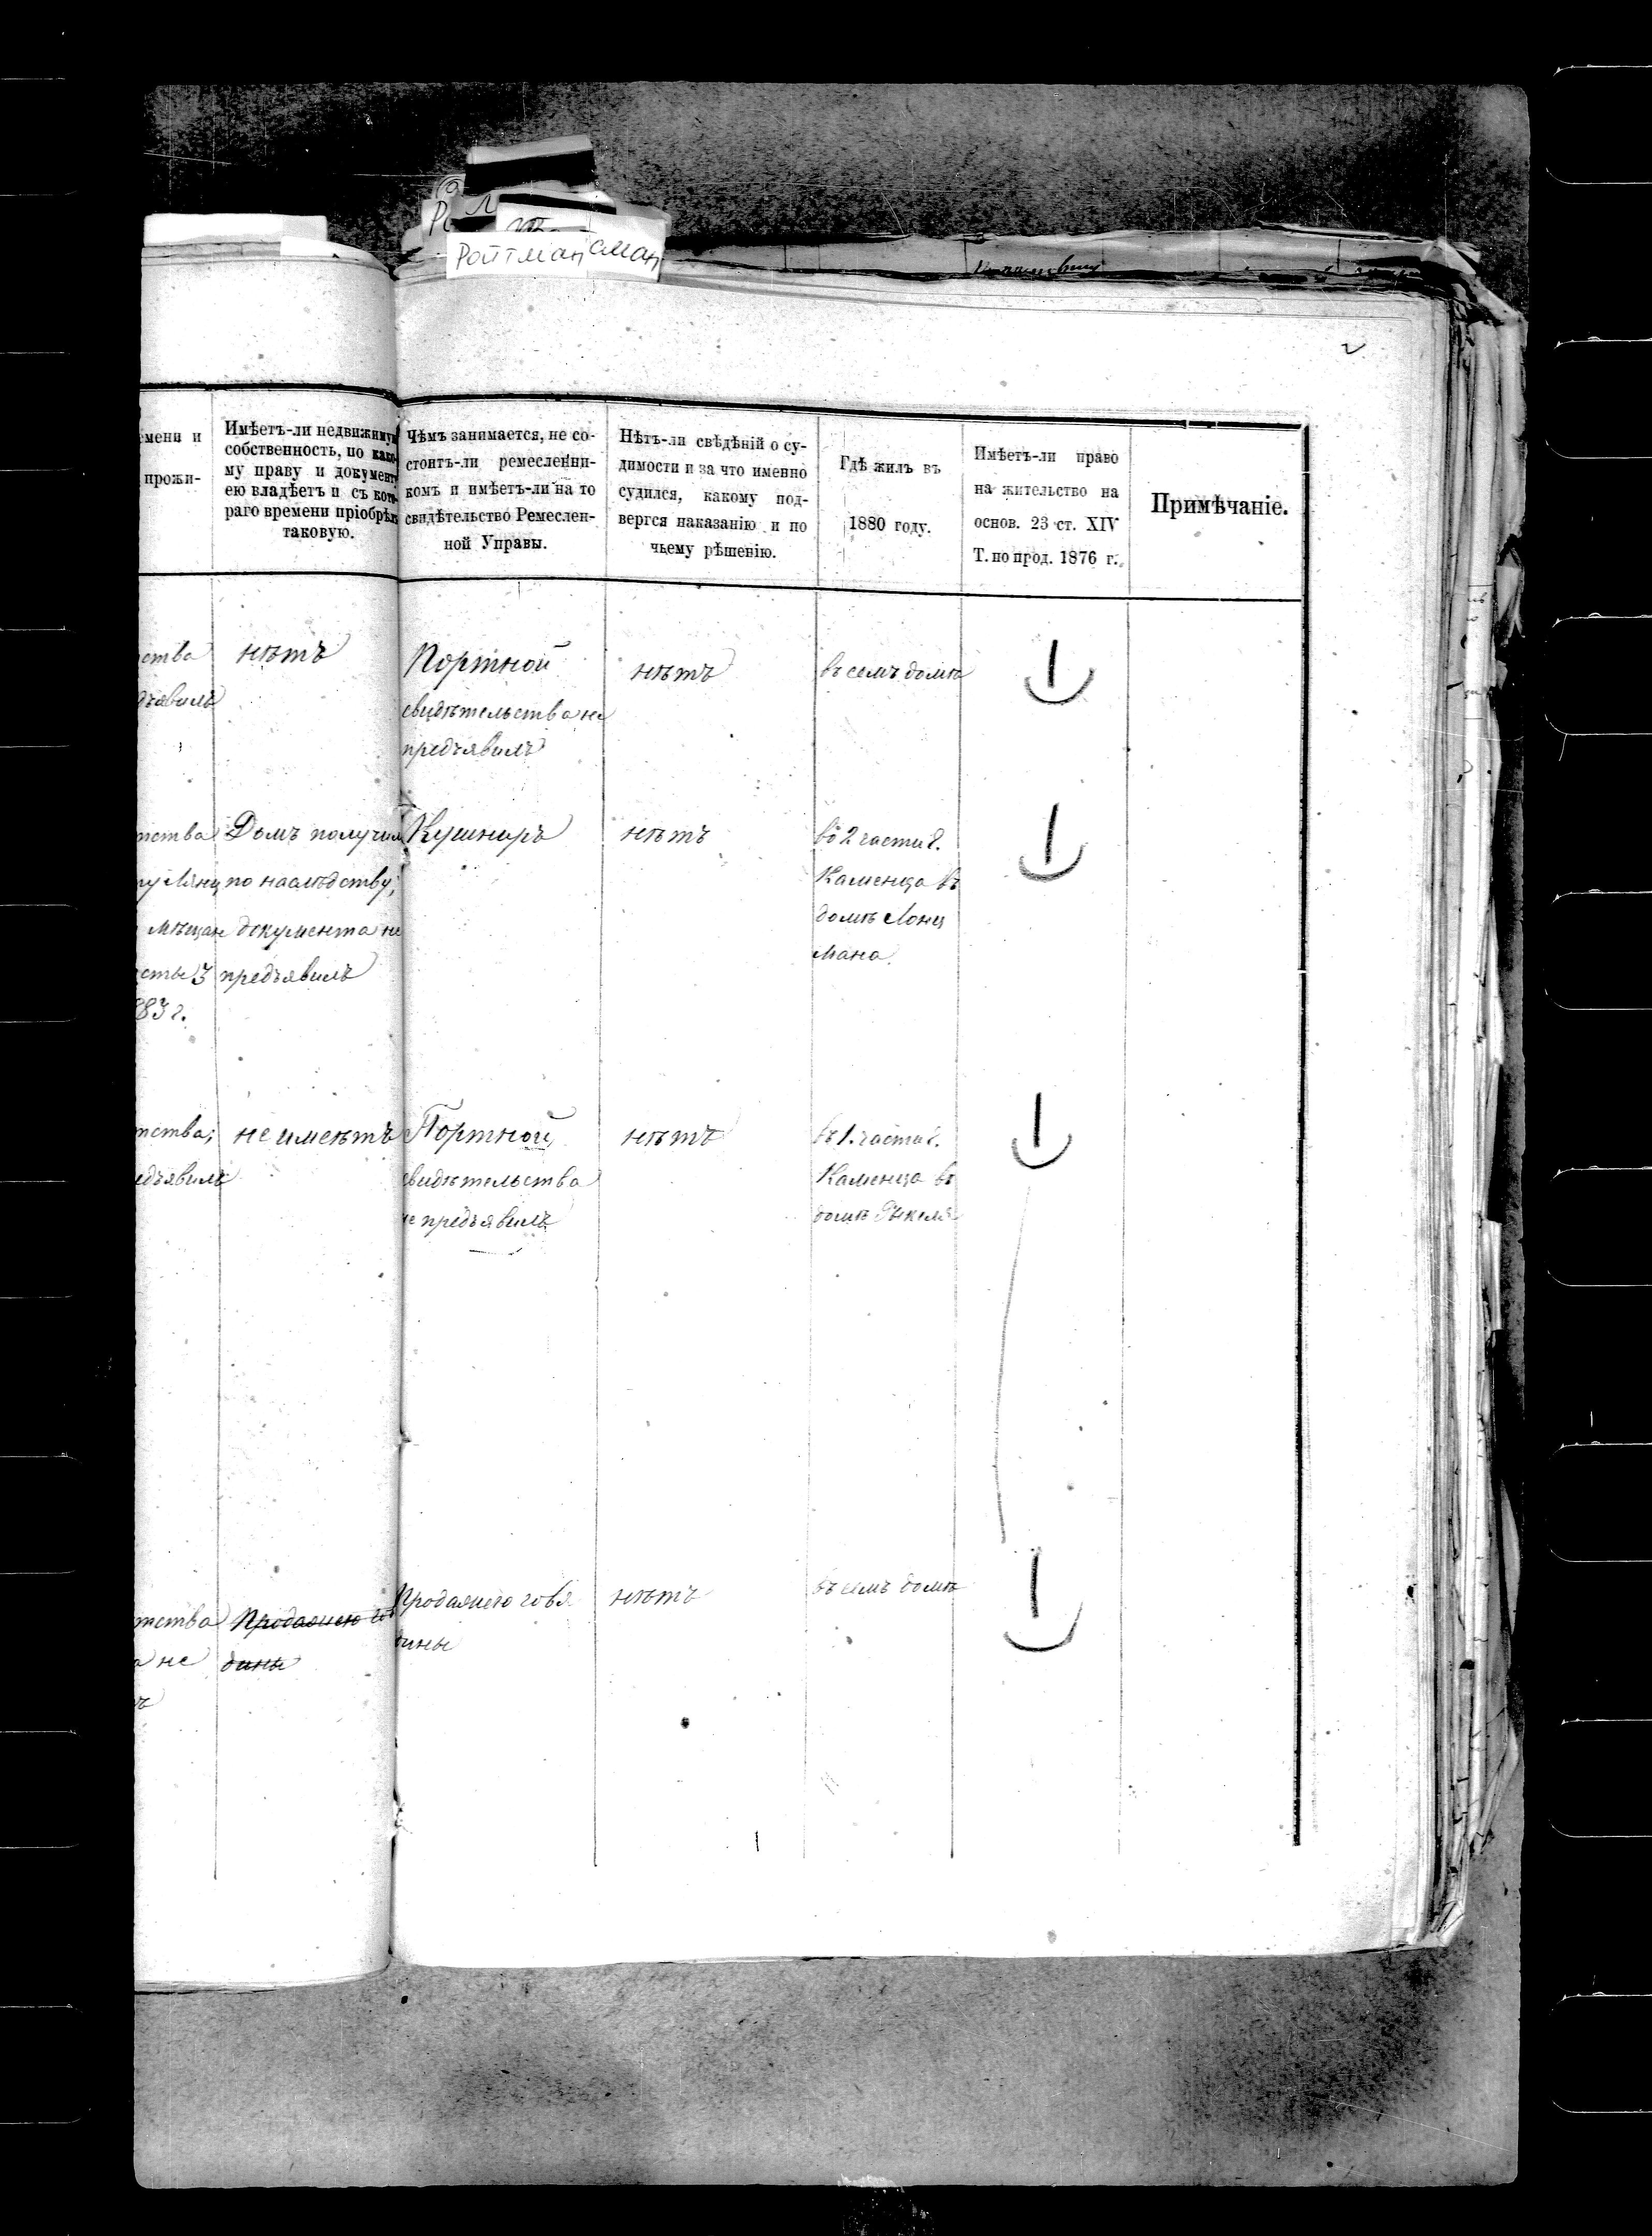 Ройтман
сман
мени и
прожи-
Имѣетъ-ли недвижимую
собственность, по како-
му праву и документу
ею владѣетъ и съ кото-
раго времени пріобрѣлъ
таковую.
Чѣмъ занимается, не со-
стоитъ-ли ремесленни-
комъ и имѣетъ-ли на то
свидѣтельство Ремеслен-
ной Управы.
Нѣтъ-ли свѣдѣній о су-
димости и за что именно
судился, какому под-
вергся наказанію и по
чьему рѣшенію.
Гдѣ жилъ въ
1880 году.
Имѣетъ-ли право
на жительство на
основ. 23 ст. XIV
Т. по прод. 1876 г.
Примѣчаніе.
ства
дъявилъ
нѣтъ
Портной
свидѣтельства не
предъявилъ
нѣтъ
въ семъ домѣ
тства
Мѣщан
сты 3
83 г.
Домъ получилъ
по наслѣдству,
документа не
предъявилъ
Кушниръ
нѣтъ
во 2 части г.
Каменца въ
домѣ Лонц
мана
тства;
едъявилъ
не имѣетъ
Портной,
свидѣтельства
не предъявилъ
нѣтъ
въ 1. части г.
Каменца въ
домѣ
тства
а не
ъ
Продавцею гов
дины
Продавцею говя
дины
нѣтъ
въ семъ домѣ